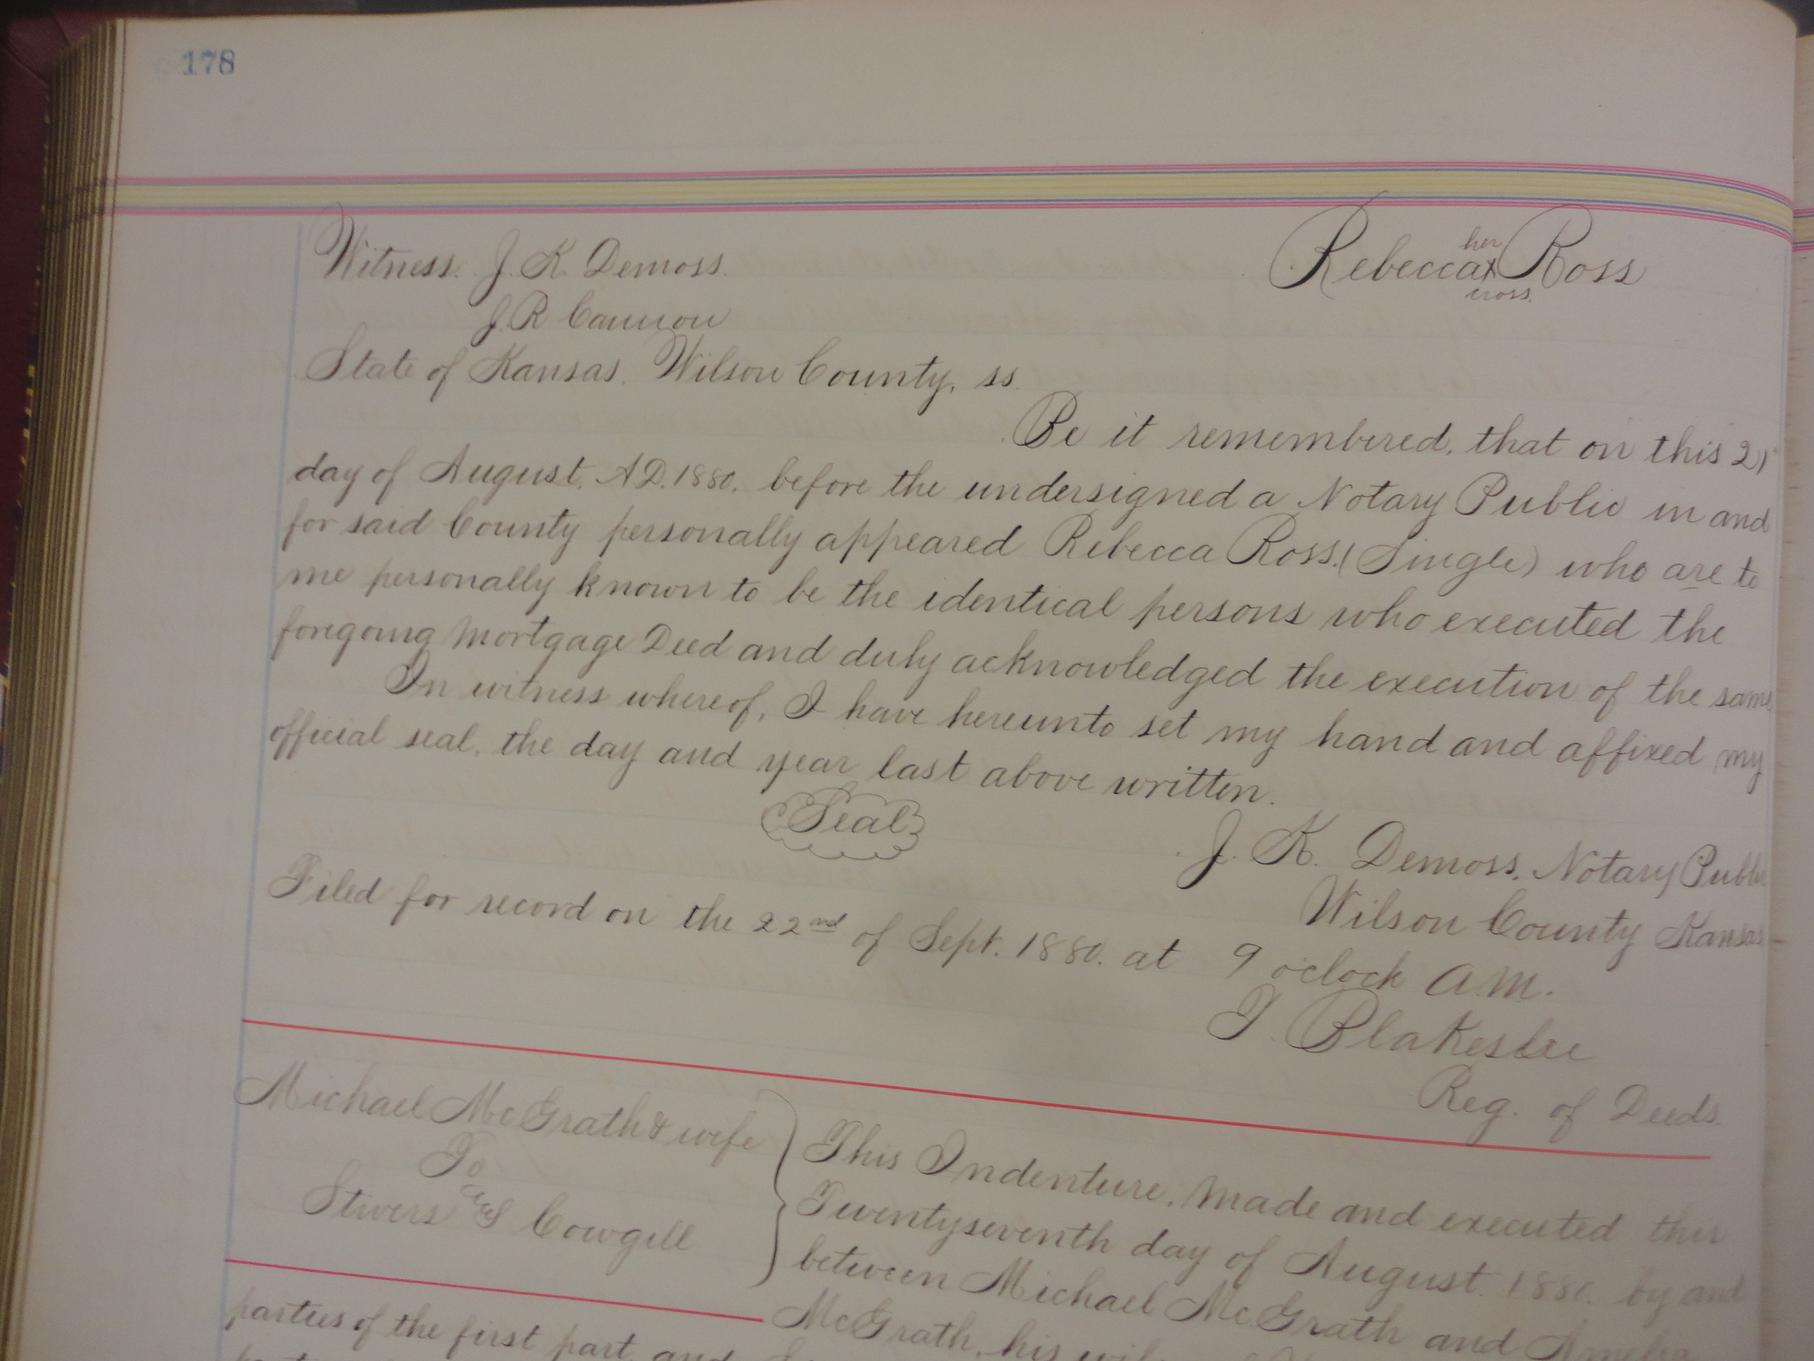 178
Witness. J. K. Demoss. Rebecca her x cross. Ross
J. R Cannon
State of Kansas. Wilson County, ss.
Be it remembered, that on this
day of August. A.D. 1880. before the undersigned a Notary Public in and
for said County personally appeared Rebecca Ross. (Single) who are to
me personally known to be the identical persons who executed the
foregoing Mortgage Deed and duly acknowledged the execution of the same.
In witness whereof, I have hereunto set my hand and affixed my
official seal. the day and year last above written.
Seal
J. K. Demoss. Notary Public
Wilson County Kansas
Filed for record on the 22nd of Sept. 1880. at 9 oclock A.M.
T. Blakeslee
Reg. of Deeds.
Michael McGrath & wife
To
Stivers & Cowgill
This Indenture. Made and executed this
Twentyseventh day of August. 1880. by and
between Michael McGrath and Amelia
McGrath, his
parties of the first part and